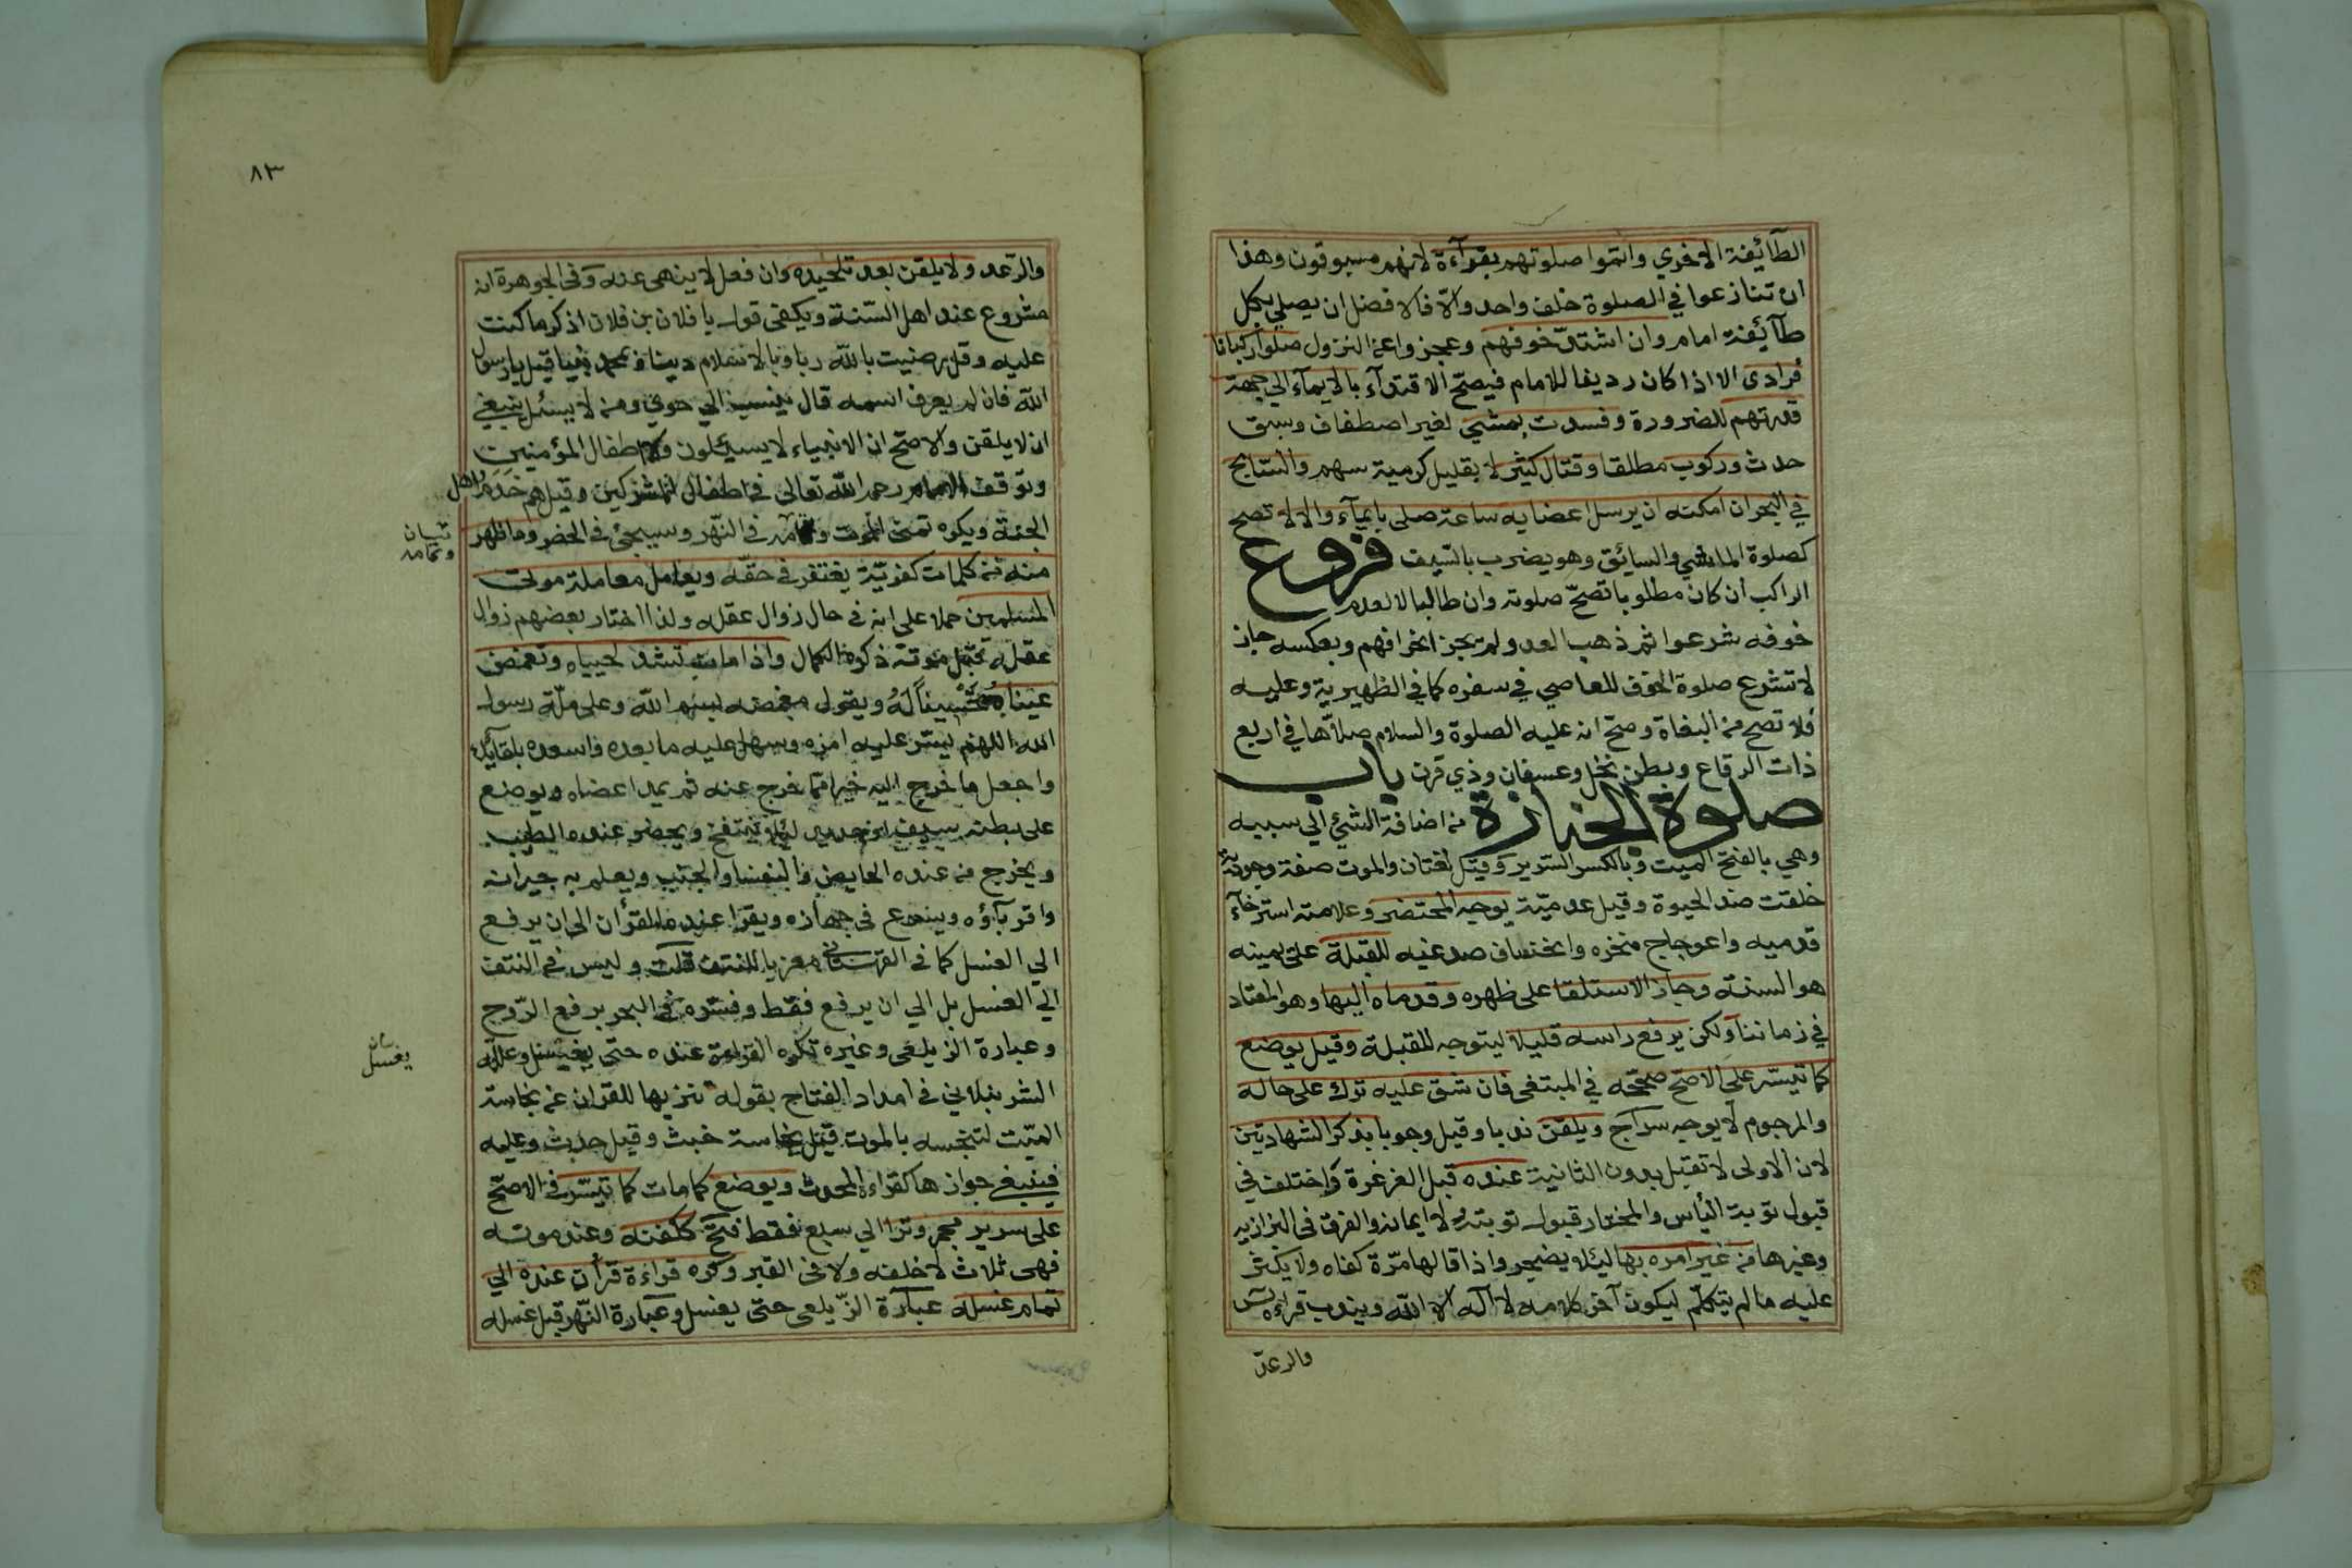 الطآئيفة الاخري واتموا صلوتهم بقرآءة لانهم مسبوقون وهذا
ان تنازعوا في الصلوة خلف واحد والّا فالافضل ان يصلي بكل
طآئيفة امام وان اشتدّ خوفهم وعجزوا عن النزول صلوا ركبانا
فرادى الا اذا كان رديفا للامام فيصحّ الاقتدآء بالايمآء الي جهة
قدرتهم للضرورة وفسدت بمشي لغير اصطفاف وسبق
حدث وركوب مطلقا وقتال كثير لا بقليل كرمية سهم والسّابح
في البحر ان امكنه ان يرسل اعضايه ساعة صلى بايمآء والا لا تصح
كصلوة الماشي والسائق وهو يضرب بالسّيف فروع
الراكب ان كان مطلوبا تصحّ صلوته وان طالبا لا لعدم
خوفه شرعوا ثم ذهب العدو لم يجز انحرافهم وبعكسه جاز
لا تشرع صلوة الخوف للعاصي في سفره كما في الظهيرية وعليه
فلا تصح من البغاة وصحّ انه عليه الصلوة والسلام صلاّها في اربع
ذات الرقاع وبطن نخل وعسفان وذي قرن باب
صلوة الجنازة من اضافة الشئ الي سببه
وهي بالفتح الميت وبالكسر السّرير وقيل لغتان والموت صفة وجودية
خلقت ضد الحيوة وقيل عدميّة يوجه المحتضر وعلامته استرخآء
قدميه واعوجاج منخره وانخساف صدغيه للقبلة على يمينه
هو السنته وجاز الاستلقا على ظهره وقدماه اليها وهو المعتاد
في زماننا ولكن يرفع راسه قليلا ليتوجه للقبلة وقيل يوضع
كما تيسّر على الاصحّ صححّه في المبتغي فان شق عليه ترك على حاله
والمرجوم لا يوجه سراج ويلقن ندبا وقيل وجوبا بذكر الشهادتين
لان الاولى لا تقبل بدون الثانية عنده قبل الغرغرة واختلف في
قبول توبة اليأس والمختار قبول توبته لا ايمانه والفرق في البزازيه
وغيرها من غير امره بها ليئلا يضجر واذا قالها مرّة كفاه ولا يكثر
عليه مالم يتكلّم ليكون آخر كلامه لآ اله الا الله ويندب قراءة يس
والرعد
٨٣
والرّعد ولا يلقن بعد تلحيده وان فعل لا ينهى عنه وفي الجوهرة انه
مشروع عند اهل السّنة ويكفى قوله يا فلان بن فلان اذكر ما كنت
عليه وقل رضيت بالله ربا وبالاسلام دينا وبمحمد نبيا قيل يارسول
الله فان لم يعرف اسمه قال ينسب الي حوي ومن لا يسئل ينبغي
ان لا يلقن والاصحّ ان الانبياء لا يسيئلون ولا اطفال المؤمنين
وتوقف الامام رحمه الله تعالى في اطفال المشركين وقيل هم خدم اهل
الجنة ويكره تمنى الموت وتمامه في النّهر وسيجئ في الحضر وما ظهر
تبيان
وتمامه
منه من كلمات كفريّة يغتفر في حقّه ويعامل معاملة موتى
المسلمين حملا على انه في حال زوال عقله ولذا اختار بعضهم زوال
عقله قبل موته ذكره الكمال واذا مات تشد لحيياه وتغمض
عيناه تحسيناً له ويقول مغمضه بسم الله وعلى ملّة رسول
الله اللهم يسّر عليه امره وسهل عليه ما بعده واسعده بلقآئك
واجعل ما خرج اليه خيرا ممّا خرج عنه ثم يمد اعضاه ويوضع
على بطنه سيف او حديد ليئلا ينتفخ ويحضر عنده الطيب
ويخرج من عنده الحايض والنفسا والجنب ويعلم به جيرانه
واقربآؤه ويسرع في جهازه ويقرا عنده القرأن الى ان يرفع
الي الغسل كما في القهستاني معزيا للنتف قلت وليس في النتف
الي الغسل بل الي ان يرفع فقط وفسّره في البحر برفع الرّوح
وعبارة الزيلعي وغيره تكره القراءة عنده حتى يغسل وعلله
بيان
يغسل
الشرنبلاني في امداد الفتاح بقوله تنزيها للقران عن نجاسة
الميّت لتنجسه بالموت قيل نجاسة خبث وقيل حدث وعليه
فينبغي جوازها كقراءة المحدث ويوضع كما مات كما تيسّر في الاصحّ
على سرير مجمر وترا الي سبع فقط فتح ككفنه وعند موته
فهى ثلاث لا خلفه ولا في القبر وكره قراءة قرأن عنده الي
تمام غسله عبارة الزّيلعي حتى يغسل وعبارة النّهر قبل غسله